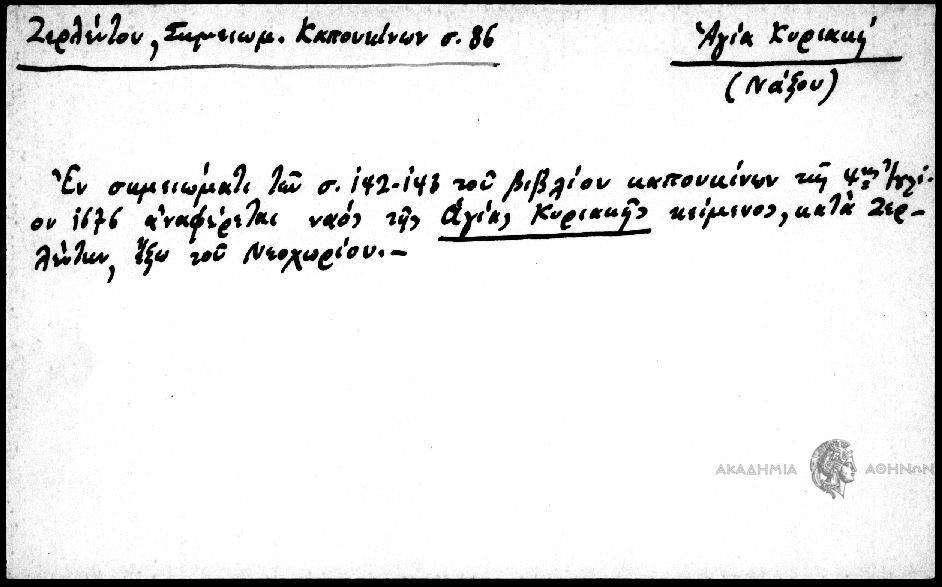 Ζερλέντου, Σημειωμ. Καπουκίνων σ. 86
Ἁγία Κυριακή
(Νάξου)
Ἐν σημειώματι τῶν σ. 142-143 τοῦ βιβλίου καπουκίνων τῆς 4ης Ἰουλί-
ου 1676 ἀναφέρεται ναός τῆς Ἁγίας Κυριακῆς κείμενος, κατὰ Ζερ-
λέντην, ἔξω τοῦ Νεοχωρίου.—
ΑΚΑΔΗΜΙΑ ΑΘΗΝΩΝ